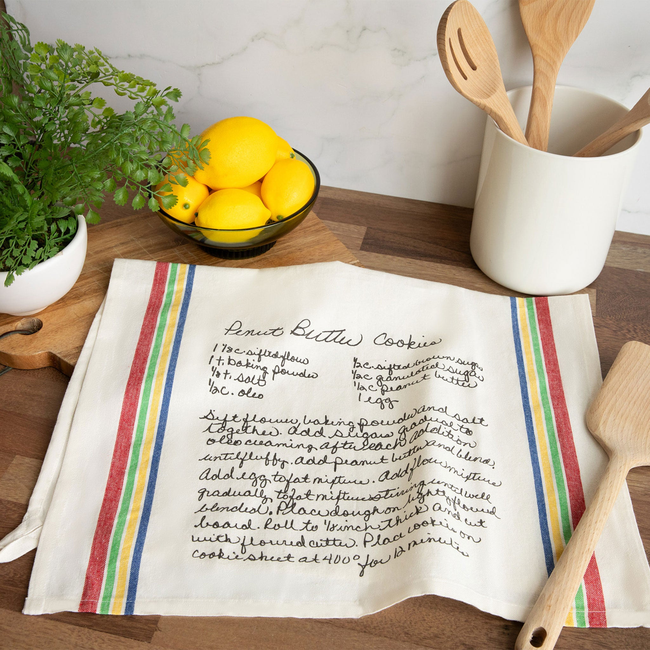 Peanut Butter Cookies
1 1/2c sifted flour
1 t. baking powder
1/4 t. salt
1/2c. oleo
1/2c sifted brown sugar
1/2c granulated sugar
1/2c peanut butter
1 egg
Sift flour, baking powder and salt
together. Add sugar gradual to
oleo creaming after each addition
until fluffy. add peanut butter and blend
Add egg to fat mixture. Add flour mixture
gradually to fat mixture stirring until well
blended. Place dough on lightly floured
board. Roll to 1/8 inch thick and cut
with floured cutter. Place cookies on
cookie sheet at 400° for 12 minutes